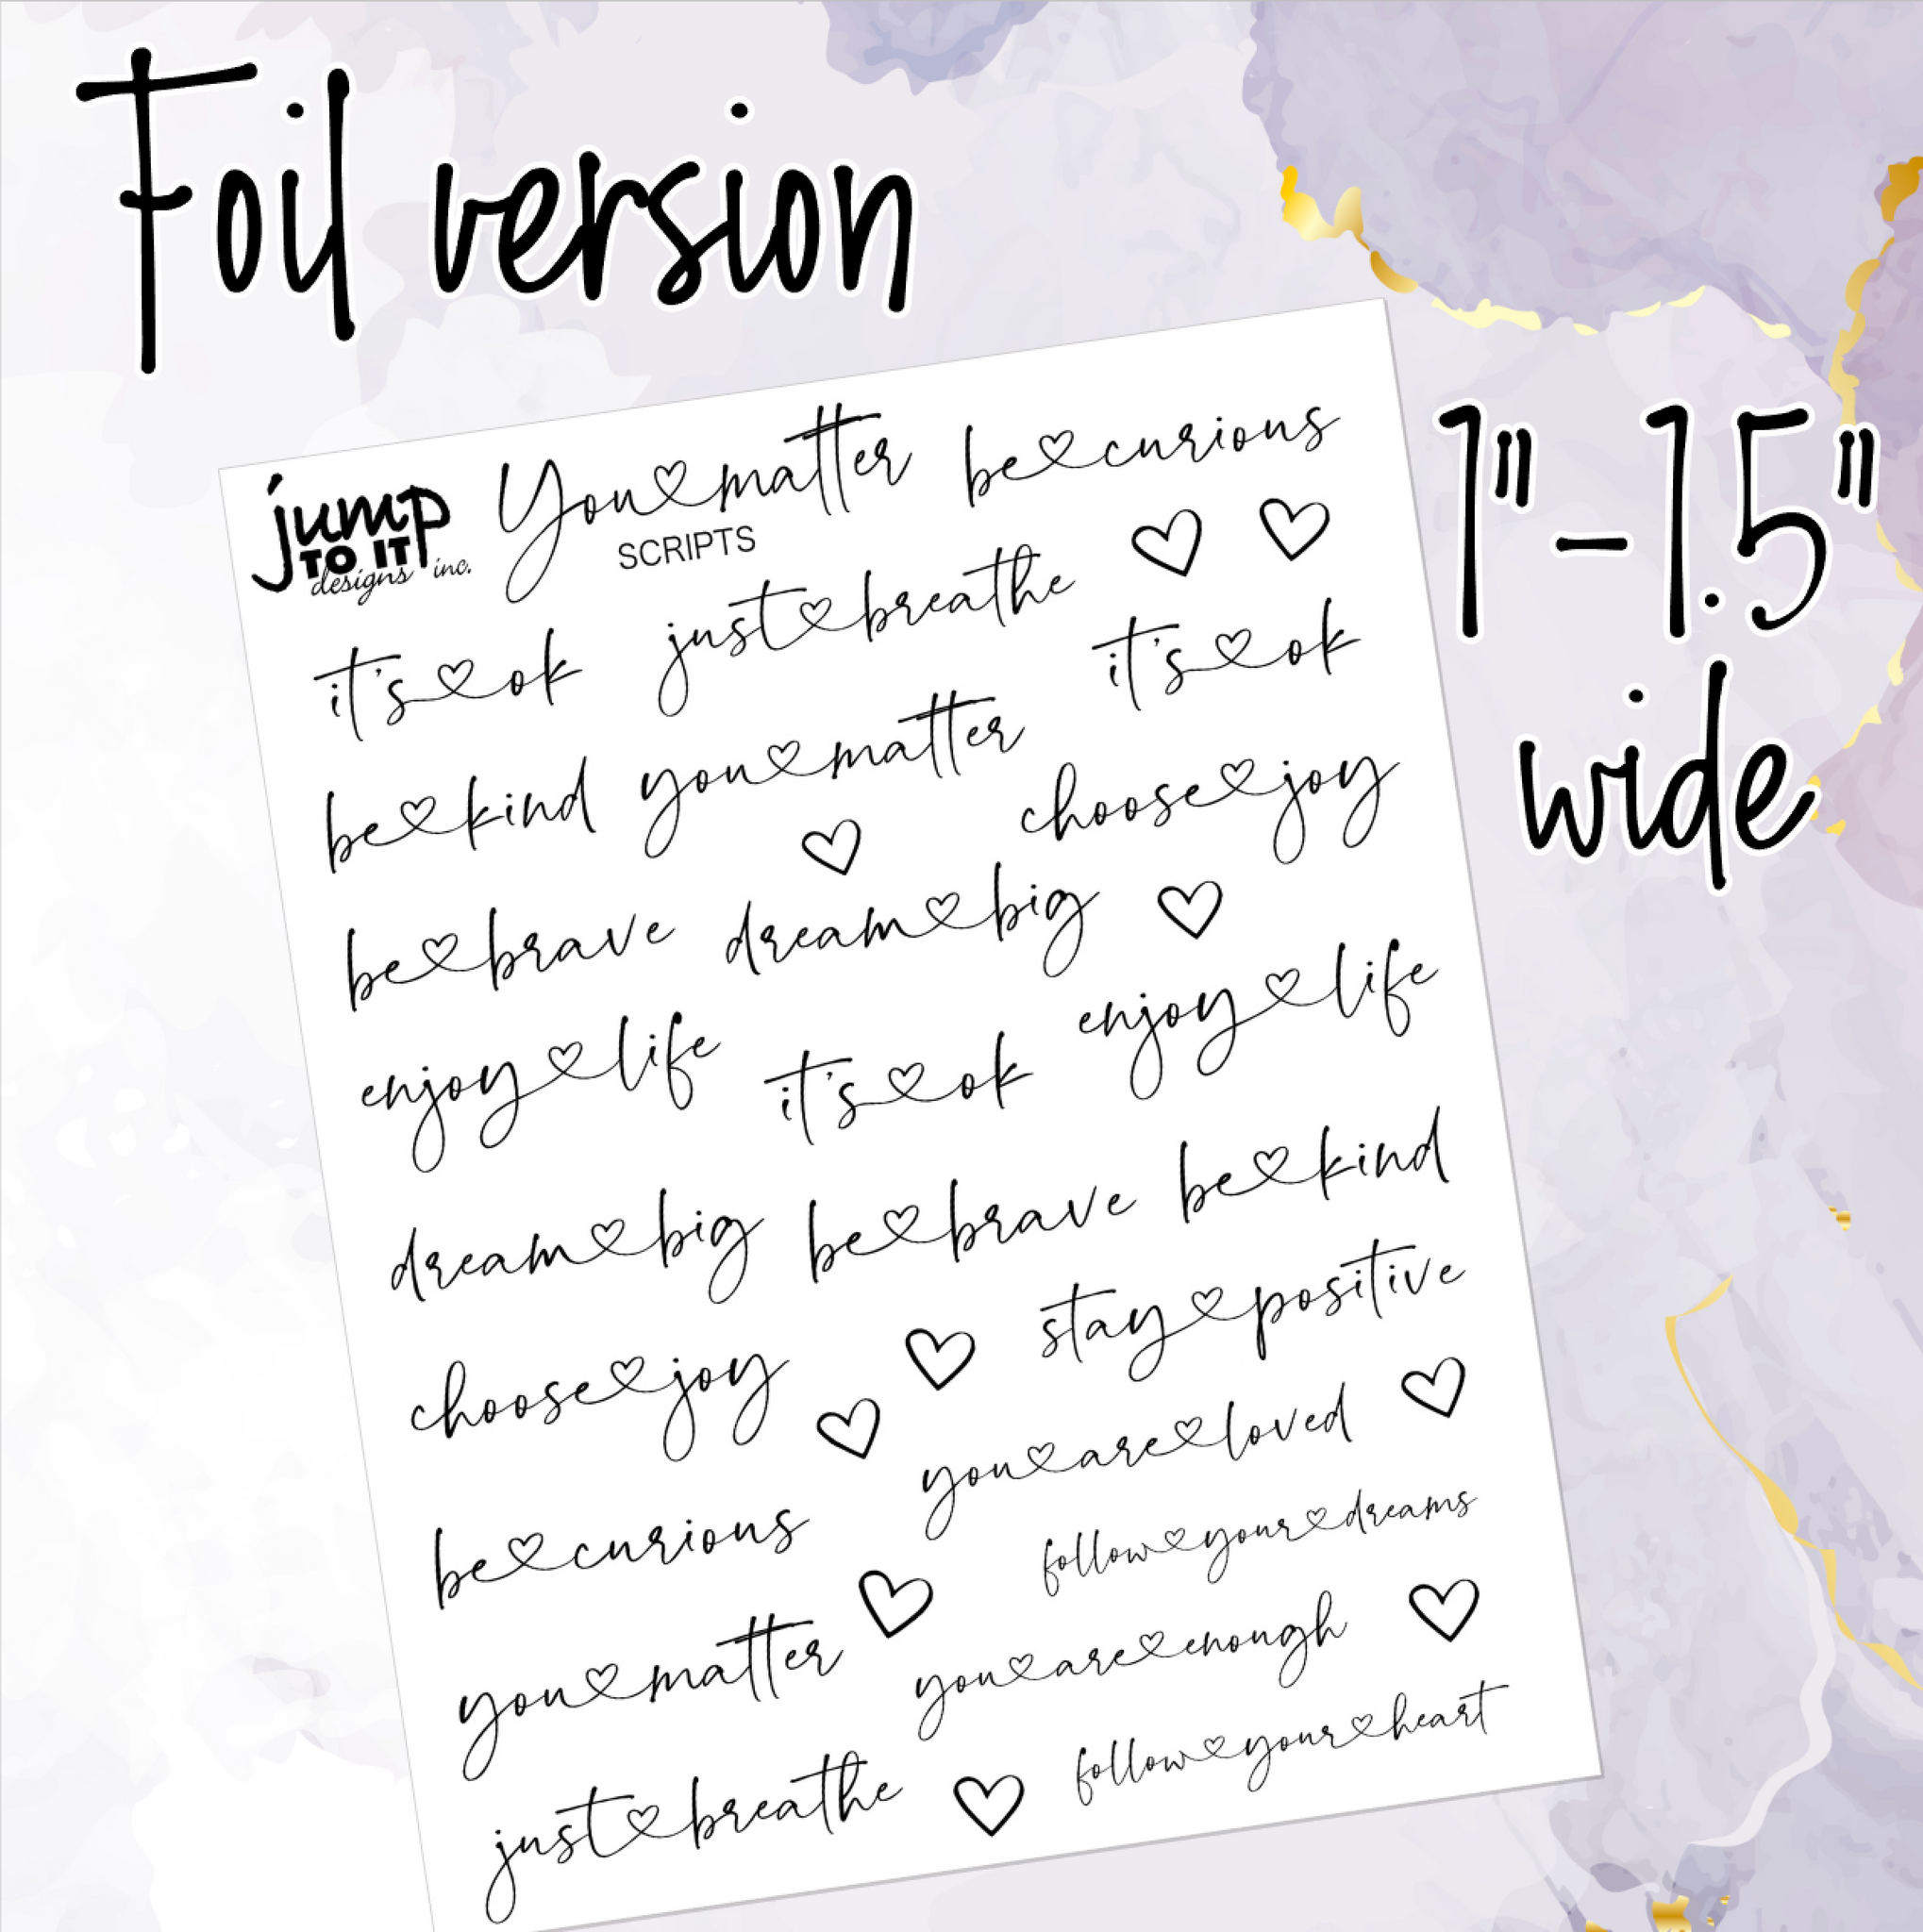 Foil version
1"-1.5"
wide
jump
TO IT
designs inc.
You matter
SCRIPTS
be curious
it's ok
just breathe
it's ok
be kind
you matter
choose joy
be brave
dream big
enjoy life
it's ok
enjoy life
dream big
be brave
be kind
choose joy
stay positive
you are loved
be curious
follow your dreams
you matter
you are enough
just breathe
follow your heart